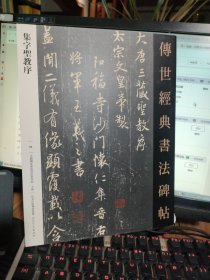 傳世經典書法碑帖
集字聖教序
大唐三藏聖教序
太宗文皇帝製
弘福寺沙門懷仁集晉右
將軍王羲之書
蓋聞二儀有像顯覆載以含